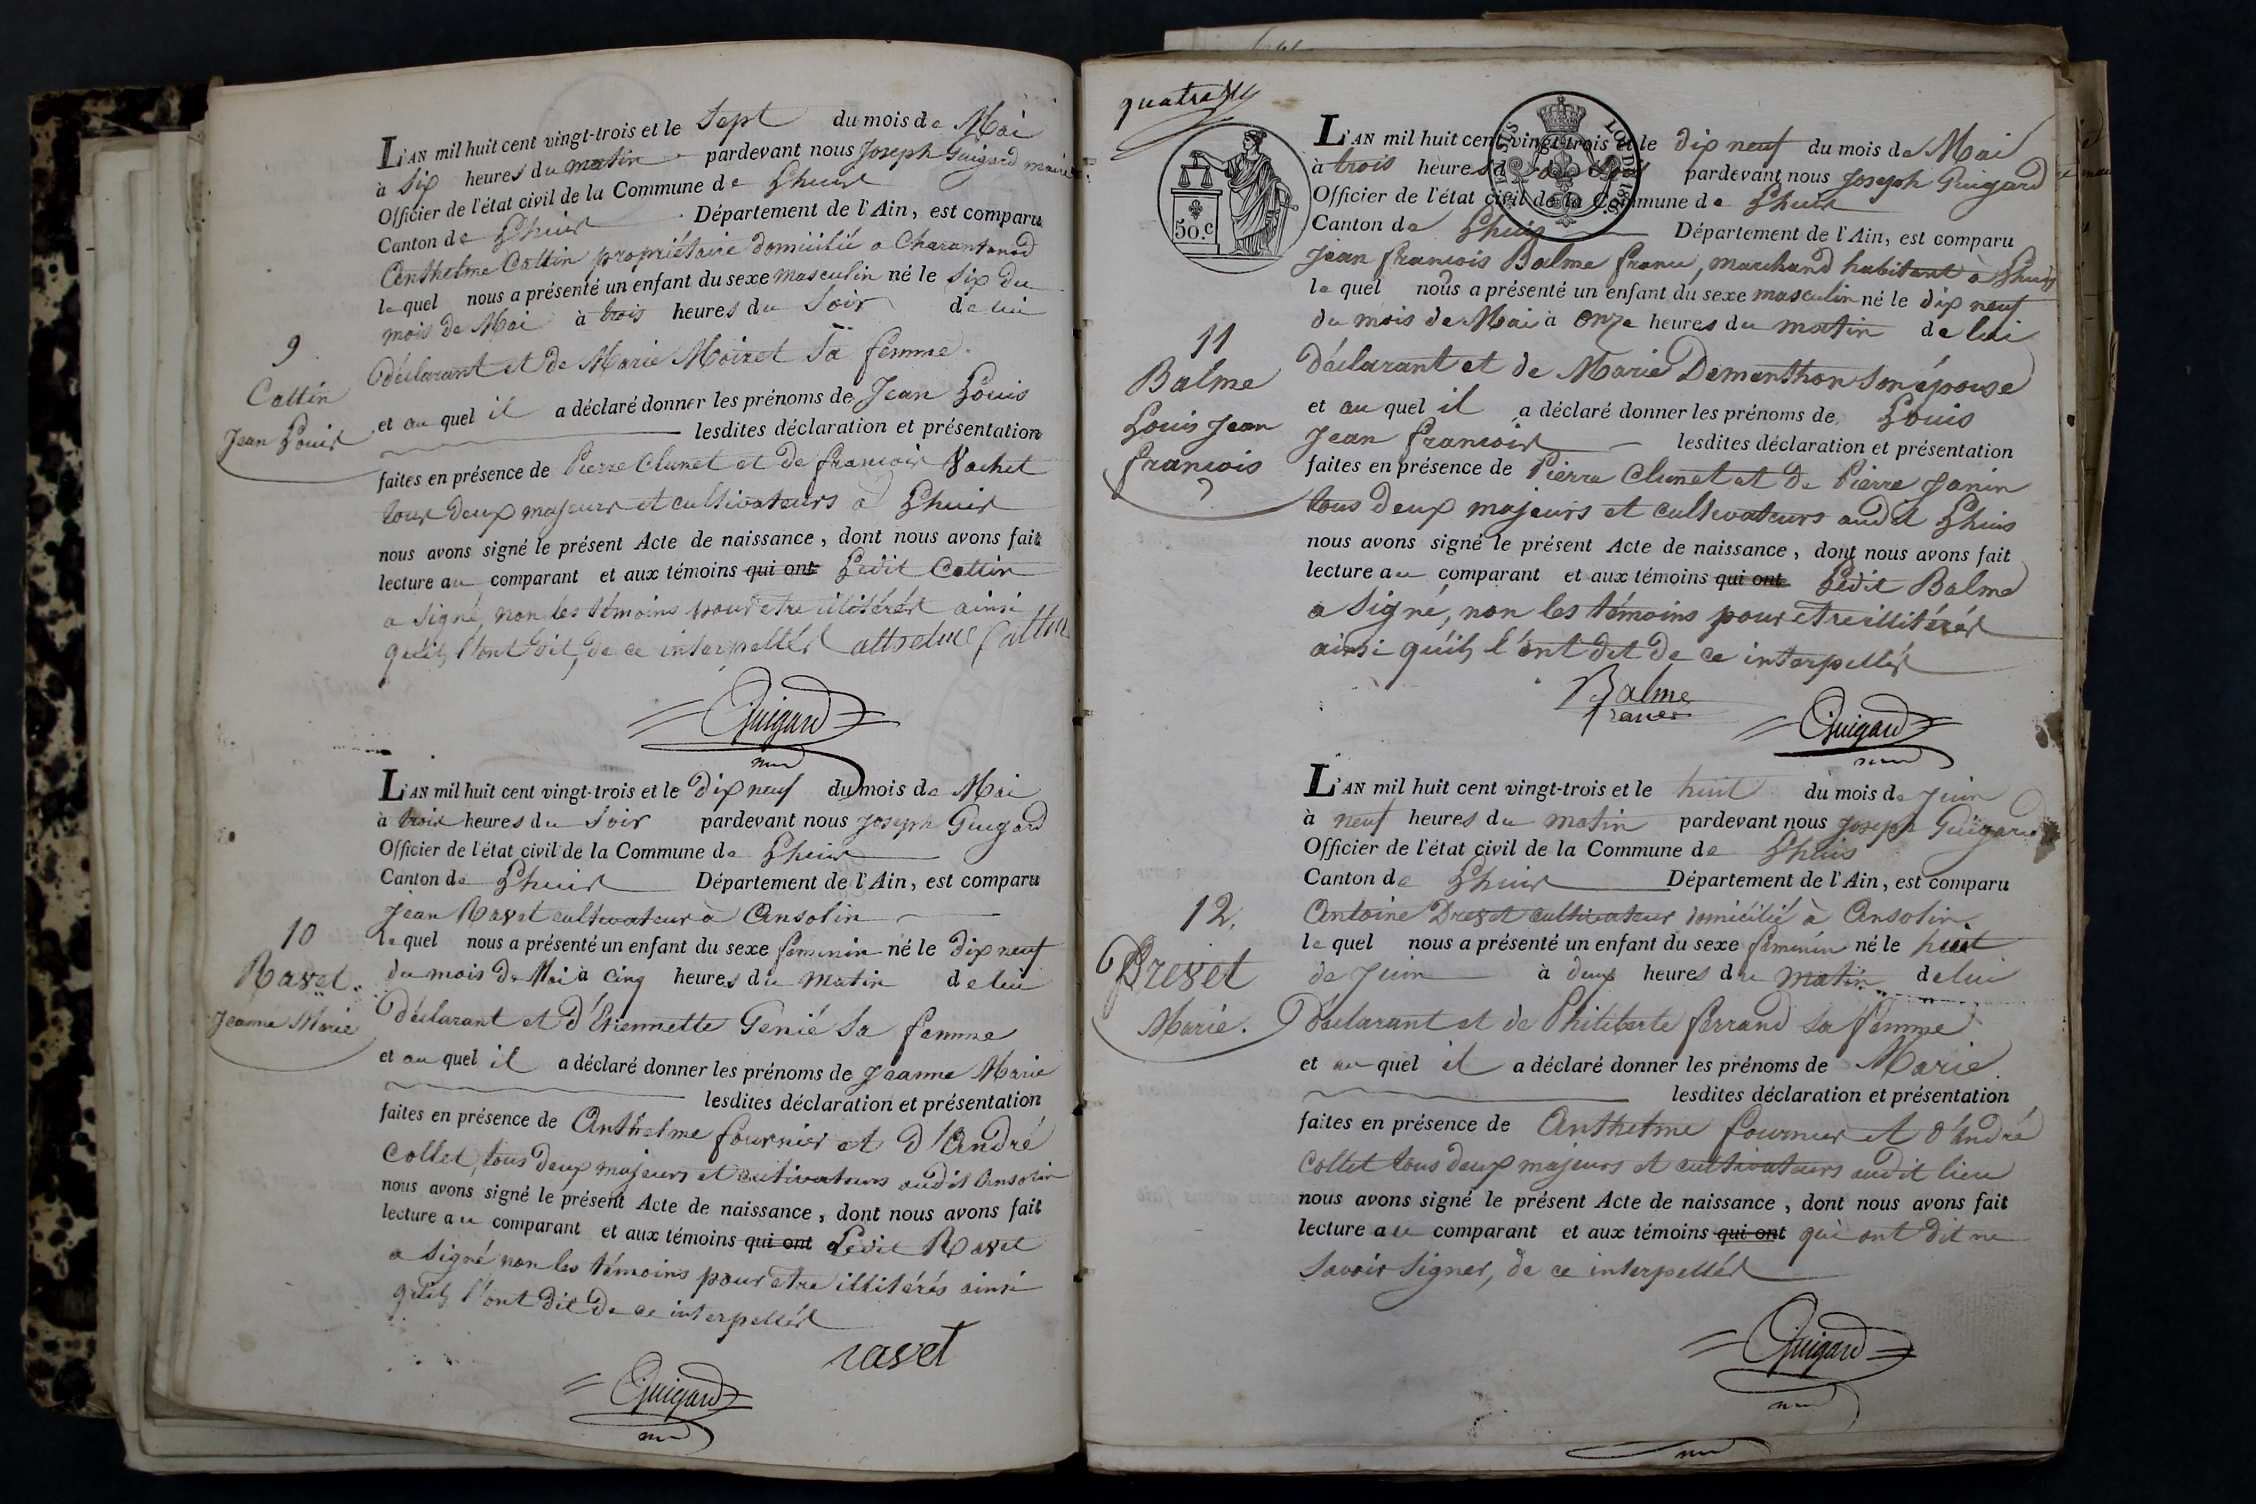 L'AN mil huit cent vingt-trois et le Sept du mois de Mai
à Six heures du matin pardevant nous Joseph Guigard maire
Officier de l'état civil de la Commune de Lhuis
Canton de Lhuis Département de l'Ain, est comparu
Anthelme Cattin propriétaire domicilié a Charantonod
le quel nous a présenté un enfant du sexe masculin né le Six du
mois de Mai à trois heures du Soir de lui
9
Cattin
Jean Louis
déclarant et de Marie Moiret Sa femme.
et au quel il a déclaré donner les prénoms de Jean Louis
lesdites déclaration et présentation
faites en présence de Pierre Clunet et de francois Vachet
tous deux majeurs et cultivateurs à Lhuis
nous avons signé le présent Acte de naissance, dont nous avons fait
lecture au comparant et aux témoins qui ont Ledit Cattin
a Signé, non les témoins pour etre illitérés ainsi
qu'ils l'ont dit, de ce interpellés Cattin
Guigard
L'AN mil huit cent vingt-trois et le dix neuf du mois de Mai
à trois heures du Soir pardevant nous Joseph Guigard
Officier de l'état civil de la Commune de Lhuis
Canton de Lhuis Département de l'Ain, est comparu
Jean Ravet cultivateur à Ansolin
le quel nous a présenté un enfant du sexe feminin né le dix neuf
du mois de Mai à cinq heures du matin de lui
10
Ravet.
Jeanne Marie
déclarant et d'Etiennette Genié Sa femme
et au quel il a déclaré donner les prénoms de Jeanne Marie
lesdites déclaration et présentation
faites en présence de Anthelme fournier et d'André
Collet, tous deux majeurs et cultivateurs audit Ansolin
nous avons signé le présent Acte de naissance, dont nous avons fait
lecture au comparant et aux témoins qui ont Ledit Ravet
a Signé non les témoins pour etre illitérés ainsi
qu'ils l'ont dit de ce interpellés
ravet
Guigard
quatre
50.c
LOI DE 1816.
L'AN mil huit cent vingt-trois et le dix neuf du mois de Mai
à trois heures du Soir pardevant nous Joseph Guigard
Officier de l'état civil de la Commune de Lhuis
Canton de Lhuis Département de l'Ain, est comparu
Jean francois Balme franc, marchand habitant à Lhuis
le quel nous a présenté un enfant du sexe masculin né le dix neuf
du mois de Mai à onze heures du matin de lui
11
Balme
Louis Jean
francois
déclarant et de Marie Dementhon son épouse
et au quel il a déclaré donner les prénoms de Louis
Jean francois lesdites déclaration et présentation
faites en présence de Pierre Clunet et de Pierre Janin
tous deux majeurs et cultivateurs audit Lhuis
nous avons signé le présent Acte de naissance, dont nous avons fait
lecture au comparant et aux témoins qui ont Ledit Balme
a Signé, non les témoins pour etre illitérés
ainsi qu'ils l'ont dit de ce interpellés
Balme
franc
Guigard
L'AN mil huit cent vingt-trois et le huit du mois de Juin
à neuf heures du matin pardevant nous Joseph Guigard
Officier de l'état civil de la Commune de Lhuis
Canton de Lhuis Département de l'Ain, est comparu
Antoine Drevet cultivateur domicilié à Ansolin
le quel nous a présenté un enfant du sexe feminin né le huit
de Juin à deux heures du matin de lui
12.
Drevet
Marie.
déclarant et de Philiberte ferrand Sa femme
et au quel il a déclaré donner les prénoms de Marie
lesdites déclaration et présentation
faites en présence de Anthelme fournier et d'André
Collet tous deux majeurs et cultivateurs audit lieu
nous avons signé le présent Acte de naissance, dont nous avons fait
lecture au comparant et aux témoins qui ont qui ont dit ne
Savoir Signer, de ce interpellés
Guigard